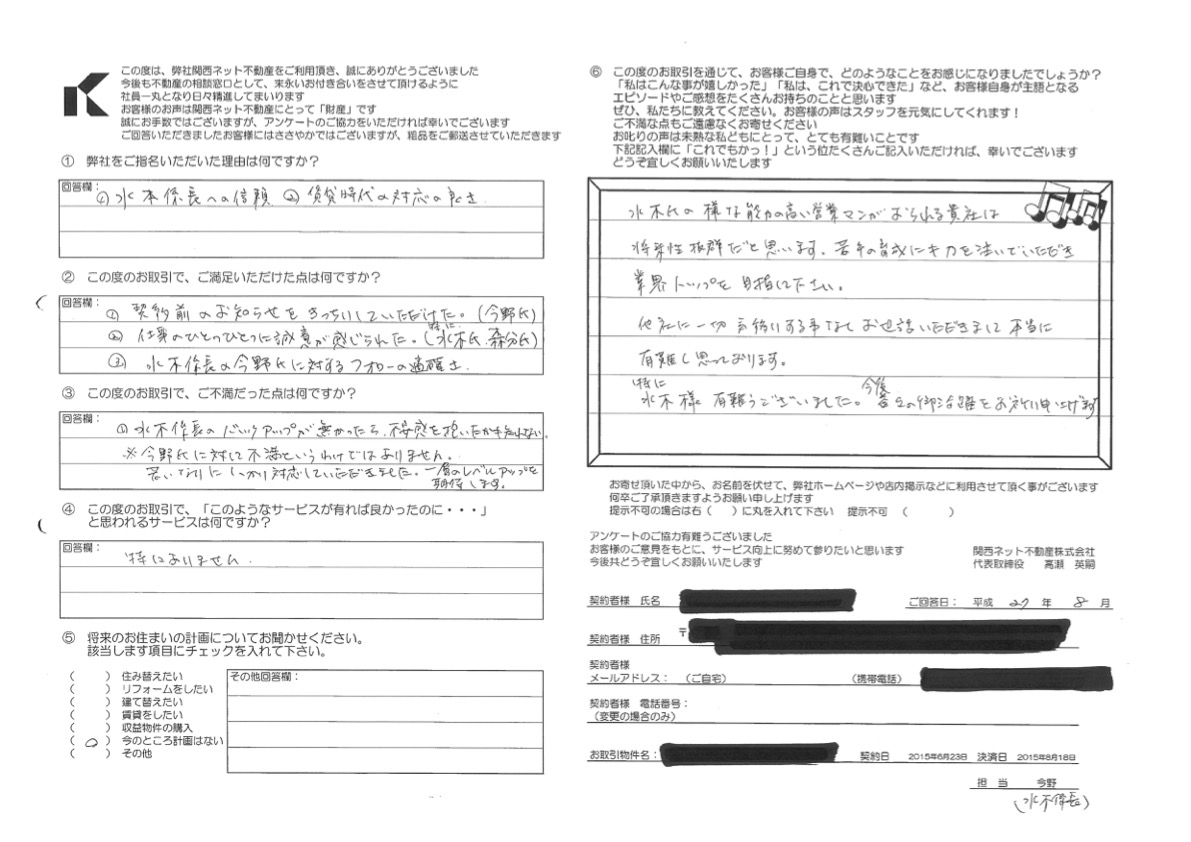 この度は、弊社関西ネット不動産をご利用頂き、誠にありがとうございました
今後も不動産の相談窓口として、末永いお付き合いをさせて頂けるように
社員一丸となり日々精進してまいります
お客様のお声は関西ネット不動産にとって「財産」です
誠にお手数ではございますが、アンケートのご協力をいただければ幸いでございます
ご回答いただきましたお客様にはささやかではございますが、粗品をご郵送させていただきます
① 弊社をご指名いただいた理由は何ですか？
回答欄：
① 水本係長への信頼 ② 賃貸時代の対応の良さ
② この度のお取引で、ご満足いただけた点は何ですか？
回答欄：
① 契約前のお知らせをきっちりしていただけた。(今野氏)
② 仕事のひとつひとつに誠意が感じられた。(特に水本氏、森分氏)
③ 水本係長の今野氏に対するフォローの適確さ
③ この度のお取引で、ご不満だった点は何ですか？
回答欄：
① 水本係長のバックアップが無かったら、不安感を抱いたかも知れない。
※今野氏に対して不満というわけではありません。
若いなりにしっかり対応していただきました。一層のレベルアップを
期待します。
④ この度のお取引で、「このようなサービスが有れば良かったのに・・・」
と思われるサービスは何ですか？
回答欄：
特にありません.
⑤ 将来のお住まいの計画についてお聞かせください。
該当します項目にチェックを入れて下さい。
(　) 住み替えたい
(　) リフォームをしたい
(　) 建て替えたい
(　) 賃貸をしたい
(　) 収益物件の購入
(○) 今のところ計画はない
(　) その他
その他回答欄：
⑥ この度のお取引を通じて、お客様ご自身で、どのようなことをお感じになりましたでしょうか？
「私はこんな事が嬉しかった」「私は、これで決心できた」など、お客様自身が主語となる
エピソードやご感想をたくさんお持ちのことと思います
ぜひ、私たちに教えてください。お客様の声はスタッフを元気にしてくれます！
ご不満な点もご遠慮なくお寄せください
お叱りの声は未熟な私どもにとって、とても有難いことです
下記記入欄に「これでもかっ！」という位たくさんご記入いただければ、幸いでございます
どうぞ宜しくお願いいたします
水本氏の様な能力の高い営業マンがおられる貴社は
将来性抜群だと思います。若手の育成に力を注いでいただき
業界トップを目指して下さい。
他社に一切手伝いする事なしお世話いただきまして本当に
有難く思っております。
特に水本様 有難うございました。今後の御活躍をお祈り申し上げます
お寄せ頂いた中から、お名前を伏せて、弊社ホームページや店内掲示などに利用させて頂く事がございます
何卒ご了承頂きますようお願い申し上げます
提示不可の場合は右（　）に丸を入れて下さい　提示不可（　）
アンケートのご協力有難うございました
お客様のご意見をもとに、サービス向上に努めて参りたいと思います
今後共どうぞ宜しくお願いいたします
関西ネット不動産株式会社
代表取締役　高瀬　英嗣
契約者様 氏名
ご回答日： 平成 27 年 8 月
契約者様 住所 〒
契約者様
メールアドレス： (ご自宅) (携帯電話)
契約者様 電話番号：
(変更の場合のみ)
お取引物件名：
契約日 2015年6月23日 決済日 2015年8月18日
担当 今野
(水本係長)